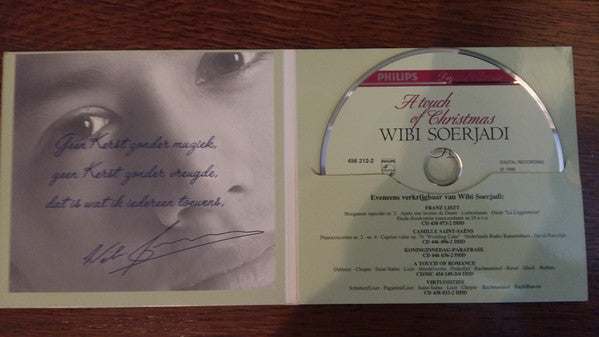 Geen Kerst zonder muziek,
geen Kerst zonder vreugde,
dat is wat ik iedereen toewens,
Wibi
PHILIPS
A touch
of Christmas
WIBI SOERJADI
456 212-2
PHILIPS
DIGITAL RECORDING
Eveneens verkrijgbaar van Wibi Soerjadi:
FRANZ LISZT
Hongaarse rapsodie nr. 2 · Après une lecture de Dante · Liebestraum · Etude "La Leggierezza"
Etude d'exécution transcendante nr. 10 e.v.a.
CD 438 073-2 DDD
CAMILLE SAINT-SAËNS
Pianoconcerten nr. 2 · nr. 4 · Caprice-valse op. 76 "Wedding Cake" · Nederlands Radio Kamerorkest · David Porcelijn
CD 446 496-2 DDD
KONINGINNEDAG-PARAFRASE
CD 446 636-2 DDD
A TOUCH OF ROMANCE
Debussy · Chopin · Saint-Saëns · Liszt · Mendelssohn · Prokofief · Rachmaninof · Ravel · Glück · Brahms
CD/MC 454 149-2/4 DDD
VIRTUOSITIES
Schubert/Liszt · Paganini/Liszt · Saint-Saëns · Liszt · Chopin · Rachmaninof · Bach/Busoni
CD 438 833-2 DDD